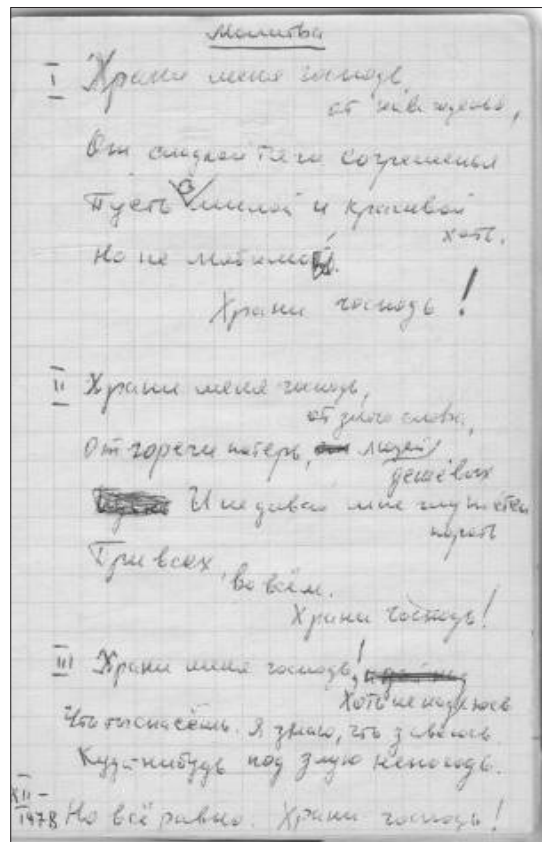 Молитва
I Храни меня господь
от наважденья,
От сладкой тяги согрешенья
Пусть с милой и красивой
хоть.
Но не любимой.
Храни господь!
II Храни меня господь,
от злого слова,
От горечи потерь, людей
дешёвых
И не давай мне глупостей
пороть
При всех, во всём.
Храни господь!
III Храни меня господь!
Хоть не надеюсь
Что ты спасёшь. Я знаю, что
Куда-нибудь под злую непогодь.
XII-
1978 Но всё равно. Храни господь!